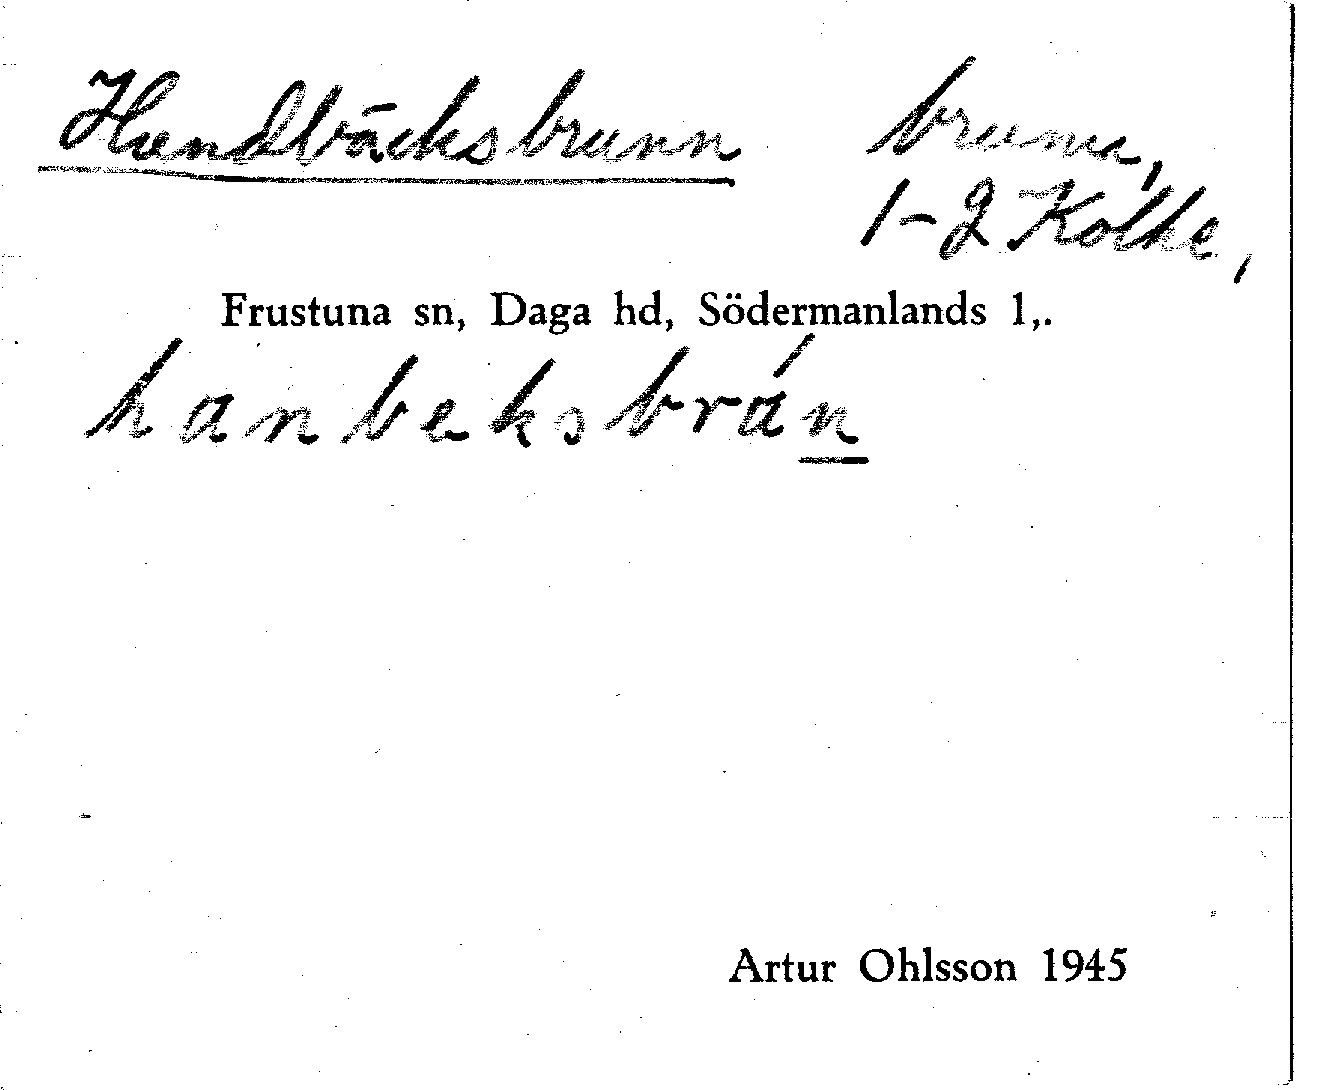 Handbäcksbrunn brunn,
1-2 Kolke,
Frustuna sn, Daga hd, Södermanlands l,.
hanbeksbrán
Artur Ohlsson 1945